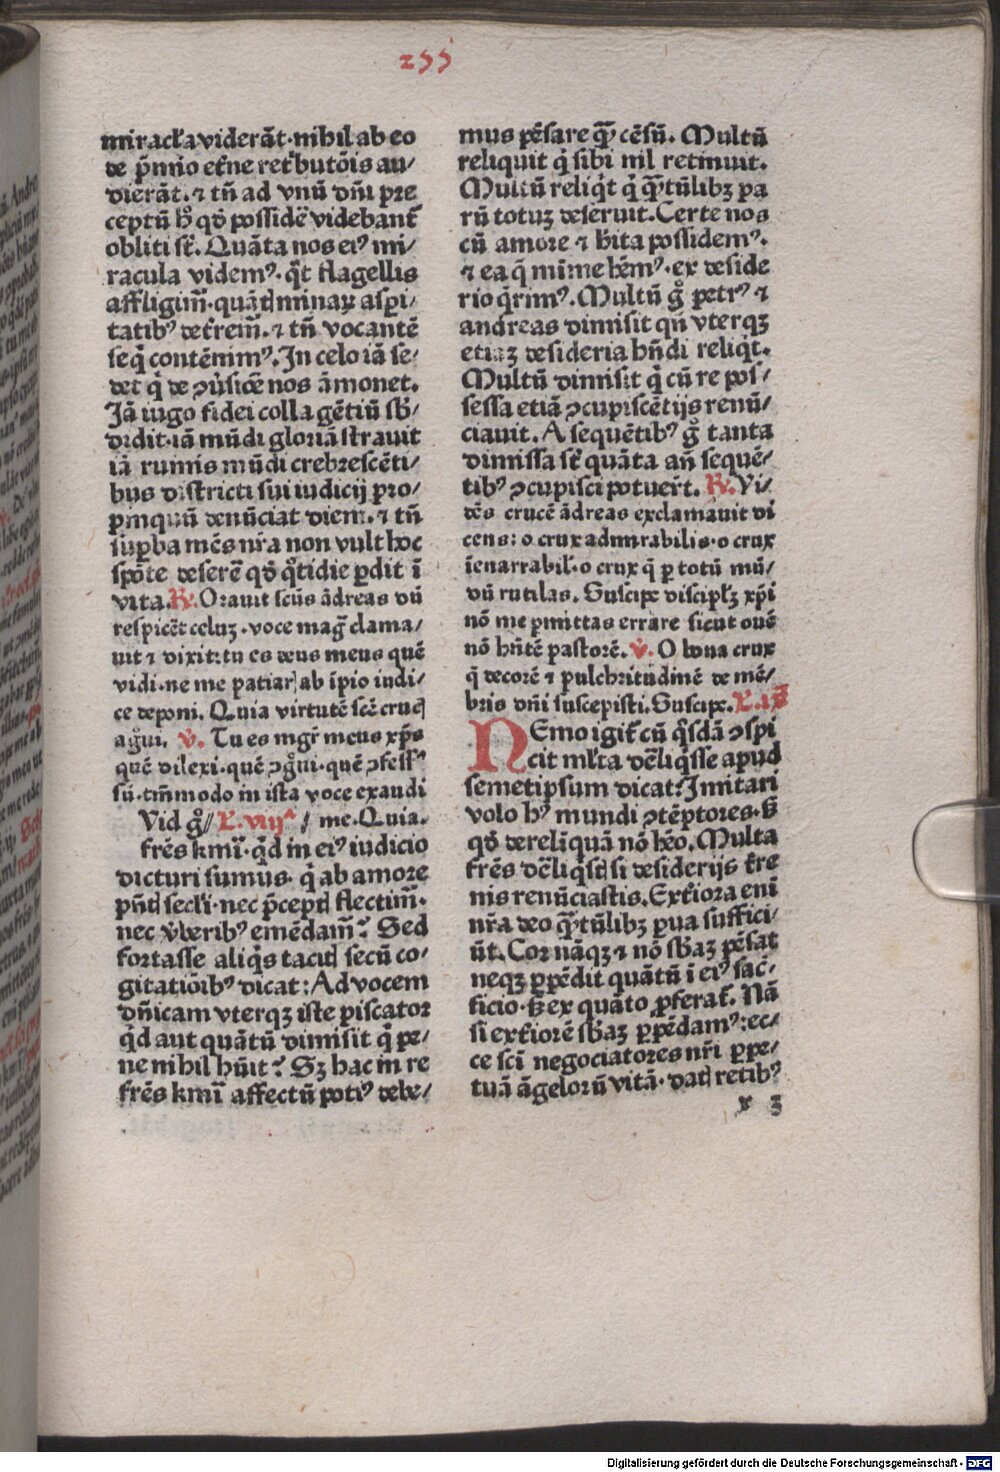 255
miracl̃a viderãt·nihil ab eo
de p̃mio et̃ne ret̃butõis au/
dierãt.⁊ tñ ad vnũ dñi pre
ceptũ hͦ qð possidẽ videbant̃
obliti st̃. Quãta nos eiꝰ mi/
racula videmꝰ. q̃t flagellis
affligim̃·quãtꝭ minaꝝ aspi/
tatibꝰ det̃rem̃.⁊ tñ vocantẽ
seq̃ contẽnimꝰ. In celo iã se/
det q̇ de ꝯũsiõe nos ãmonet.
Jã iugo fidei colla gẽtiũ sb̃/
didit·iã mũdi gloriã strauit
iã ruinis mũdi crebrescẽti/
bus districti sui iudicij pro/
pinquũ denũciat diem.⁊ tñ
suꝑba mẽs nr̃a non vult hoc
spõte deserẽ qð q̃tidie ꝑdit ĩ
vita. R̃. Orauit scũs ãdreas dũ
respicẽt celuꝫ·voce mag̃ clama/
uit ⁊ dixit:tu es deus meus quẽ
vidi·ne me patiarꝭ ab ĩpio iudi/
ce deponi. Quia virtutẽ scẽ crucꝭ
ag̃ui. v̇. Tu es mgr̃ meus xp̃s
quẽ dilexi·quẽ ꝯg̃ui·quẽ ꝯfessꝰ
sũ·tm̃modo in ista voce exaudi
Vid g̊// L. viijᵃ / me. Quia.
fr̃es kmĩ·q̇d in eiꝰ iudicio
dicturi sumus·q̇ ab amore
pñtꝭ secl̃i·nec p̃ceptꝭ flectim̃·
nec v̇beribꝰ emẽdam̃? Sed
fortasse aliq̃s tacitꝭ secũ co/
gitatiõibꝰ dicat:Ad vocem
dñicam vterqꝫ iste piscator
q̇d aut quãtũ dimisit q̇ pe/
ne nihil hũit? Sꝫ hac in re
fr̃es kmĩ affectũ potiꝰ debe/
mus pẽsare q̃ꝫ cẽsũ. Multũ
reliquit q̇ sibi nil retinuit.
Multũ reliq̇t q̇ q̃ꝫtũlibꝫ pa
rũ totuꝫ deseruit. Certe nos
cũ amore ⁊ h̃ita possidemꝰ.
⁊ ea q̃ mĩme hẽmꝰ·ex deside
rio q̃rimꝰ. Multũ g̊ petrꝰ ⁊
andreas dimisit qñ vterqꝫ
etiaꝫ desideria hñdi reliq̇t.
Multũ dimisit q̇ cũ re pos/
sessa etiã ꝯcupiscẽtijs renũ/
ciauit. A sequẽtibꝰ g̊ tanta
dimissa st̃ quãta añ sequẽ/
tibꝰ ꝯcupisci potuer̃t. R̃. Vi/
dẽs crucẽ ãdreas exclamauit di
cens:o crux admirabilis·o crux
ĩenarrabil̃·o crux q̃ ꝑ totũ mũ/
dũ rutilas. Suscipe discipl̃ꝫ xp̃i
nõ me ꝑmittas errare sicut ouẽ
nõ hñtẽ pastorẽ. v̇. O bona crux
q̃ decorẽ ⁊ pulchritudinẽ de mẽ/
bris dñi suscepisti. Suscipe. L. ix̃
NEmo igit̃ cũ q̃sdã ꝯspi
cit ml̃ta dẽliq̃sse apud
semetipsum dicat? Imitari
volo hꝰ mundi ꝯtẽptores·sꝫ
qð derelinquã nõ hẽo. Multa
fr̃es dẽliq̃stꝭ si desiderijs t̃re
nis renũciastis. Ext̃iora eni
nr̃a deo q̃ꝫtũlibꝫ ꝑua suffici/
ũt. Cor nãqꝫ ⁊ nõ sb̃aꝫ pẽsat
neqꝫ ꝑpẽdit quãtũ ĩ eiꝰ sac̃/
ficio·sꝫ ex quãto ꝓferat̃. Nã
si ext̃iorẽ sb̃aꝫ ꝑpẽdamꝰ:ec/
ce sci negociatores nr̃i ꝑpe/
tuã ãgelorũ vitã·datꝭ retibꝰ
x 3
Digitalisierung gefördert durch die Deutsche Forschungsgemeinschaft - DFG